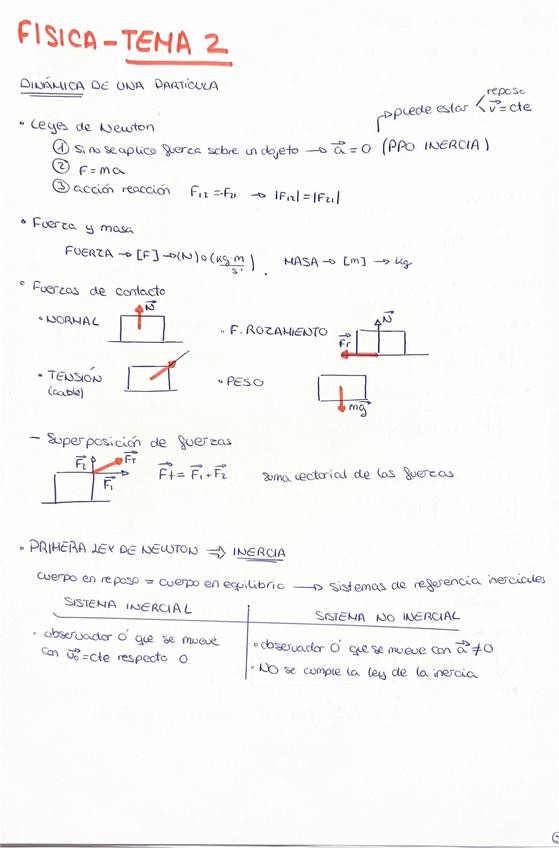 FISICA - TEMA 2
DINÁMICA DE UNA PARTÍCULA
reposo
puede estar < v⃗ = cte
• Leyes de Newton
① Si no se aplica fuerza sobre un objeto → a⃗ = 0 (PPO INERCIA)
② F = ma
③ acción reacción F12 = -F21 → |F12| = |F21|
• Fuerza y masa
FUERZA → [F] → (N) o (kg m/s²). MASA → [m] → kg
• Fuerzas de contacto
• NORMAL N⃗
• F. ROZAMIENTO N⃗ Fr⃗
• TENSIÓN
(cable)
• PESO
mg⃗
- Superposición de fuerzas
F⃗2 F⃗T F⃗1
F⃗t = F⃗1 + F⃗2 suma vectorial de las fuerzas
• PRIMERA LEY DE NEWTON ⇒ INERCIA
cuerpo en reposo = cuerpo en equilibrio → sistemas de referencia inerciales
SISTEMA INERCIAL
• observador O' que se mueve
con v⃗o = cte respecto O
SISTEMA NO INERCIAL
• observador O' que se mueve con a⃗ ≠ 0
• NO se cumple la ley de la inercia